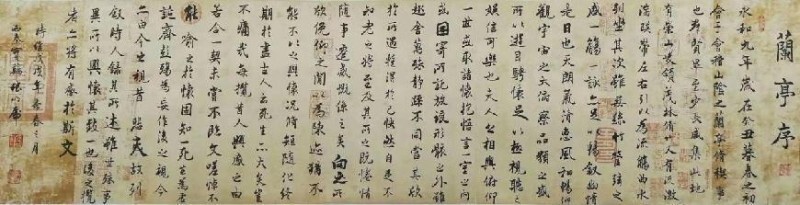 蘭亭序
永和九年歲在癸丑暮春之初
會于會稽山陰之蘭亭脩禊事
也群賢畢至少長咸集此地
有崇山峻領茂林脩竹又有清流激
湍暎帶左右引以為流觴曲水
列坐其次雖無絲竹管弦之
盛一觴一詠亦足以暢敘幽情
是日也天朗氣清惠風和暢仰
觀宇宙之大俯察品類之盛
所以遊目騁懷足以極視聽之
娛信可樂也夫人之相與俯仰
一世或取諸懷抱悟言一室之內
或因寄所託放浪形骸之外雖
趣舍萬殊靜躁不同當其欣
於所遇暫得於己快然自足不
知老之將至及其所之既惓情
隨事遷感慨係之矣向之所
欣俛仰之間以為陳迹猶不
能不以之興懷況脩短隨化終
期於盡古人云死生亦大矣豈
不痛哉每攬昔人興感之由
若合一契未嘗不臨文嗟悼不
能喻之於懷固知一死生為虛
誕齊彭殤為妄作後之視今
亦由今之視昔悲夫故列
敘時人錄其所述雖世殊事
異所以興懷其致一也後之攬
者亦將有感於斯文